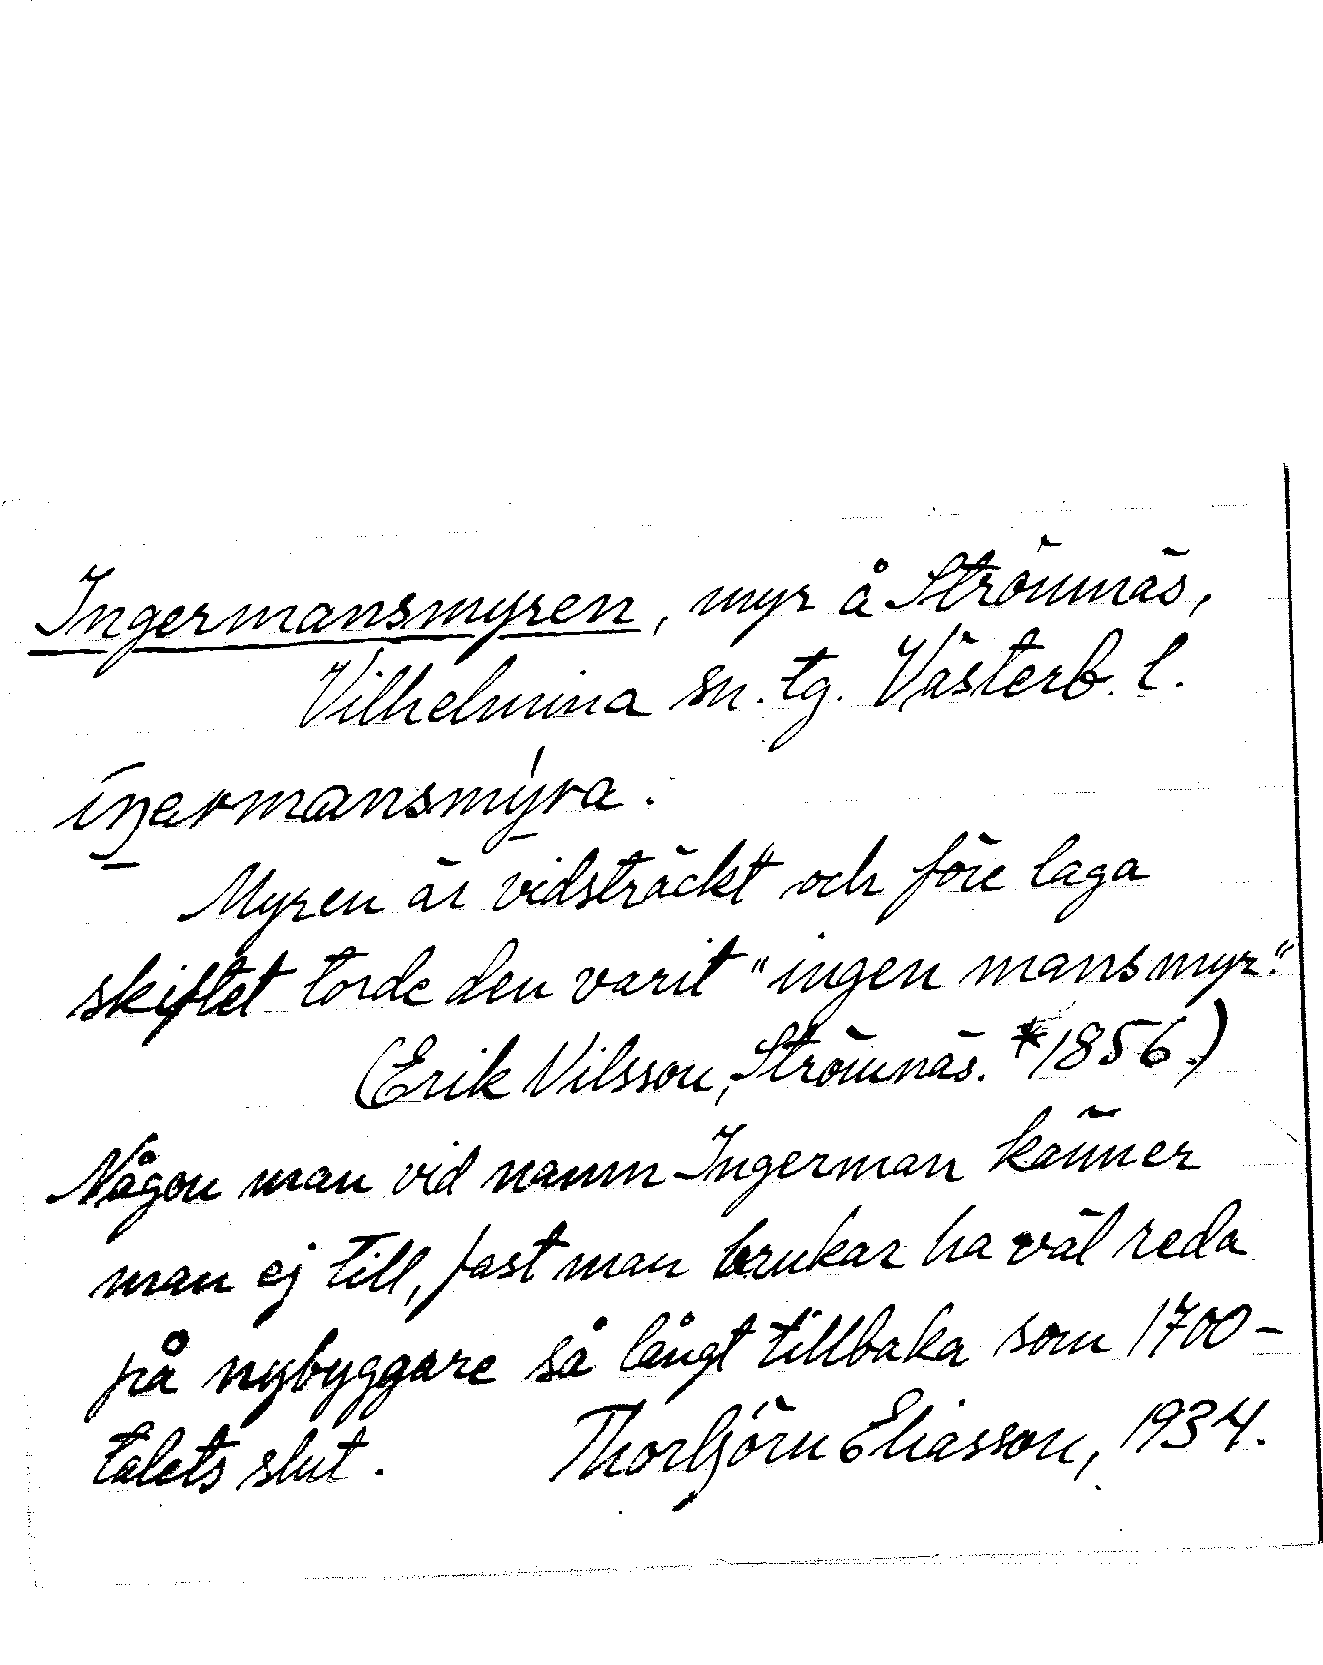 Ingermansmyren, myr å Strömnäs,
Vilhelmina sn. tg. Västerb. l.
iŋarmansmyra.
Myren är vidsträckt och före laga
skiftet torde den varit "ingen mansmyr."
(Erik Nilsson, Strömnäs. *1856)
Någon man vid namn Ingerman känner
man ej till, fast man brukar ha väl reda
på nybyggare så långt tillbaka som 1700-
talets slut. Thorbjörn Eliasson, 1934.